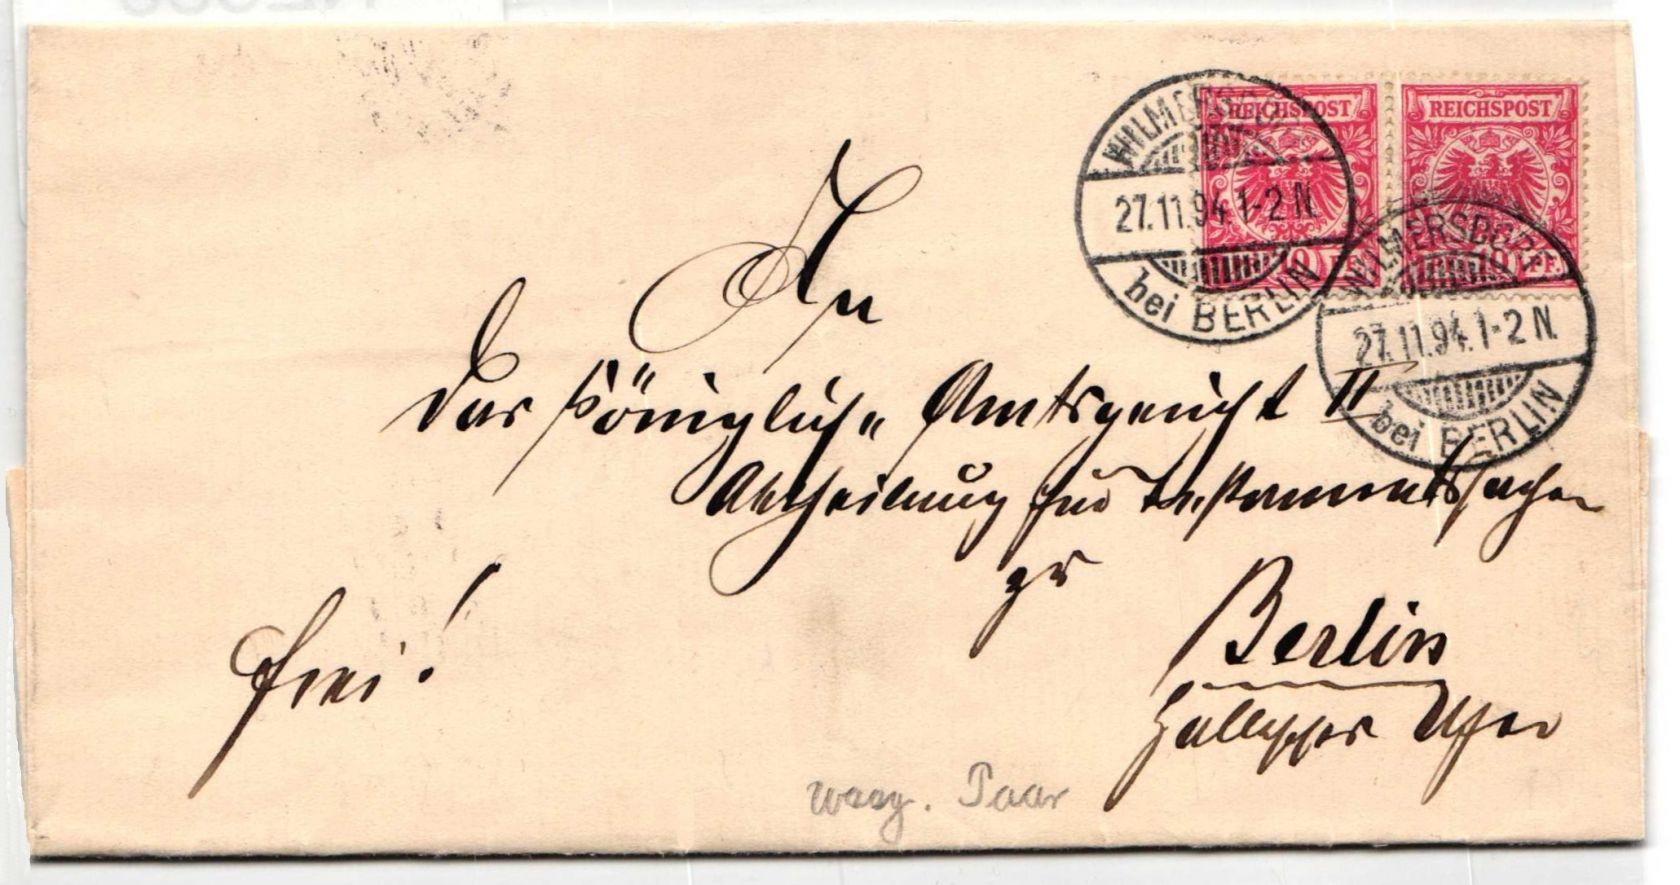 REICHSPOST REICHSPOST
10 PF. 10 PF.
WILMERSDORF
27.11.94. 1-2 N.
bei BERLIN
WILMERSDORF
27.11.94. 1-2 N.
bei BERLIN
An
das Königlich" Amtsgericht II
Abtheilung für Testamentssachen
zu
Berlin
Hallesches Ufer
frei!
waag. Paar